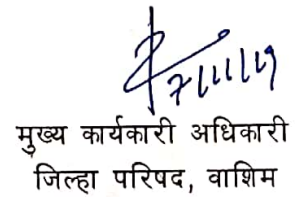 7/11/19
मुख्य कार्यकारी अधिकारी
जिल्हा परिषद, वाशिम